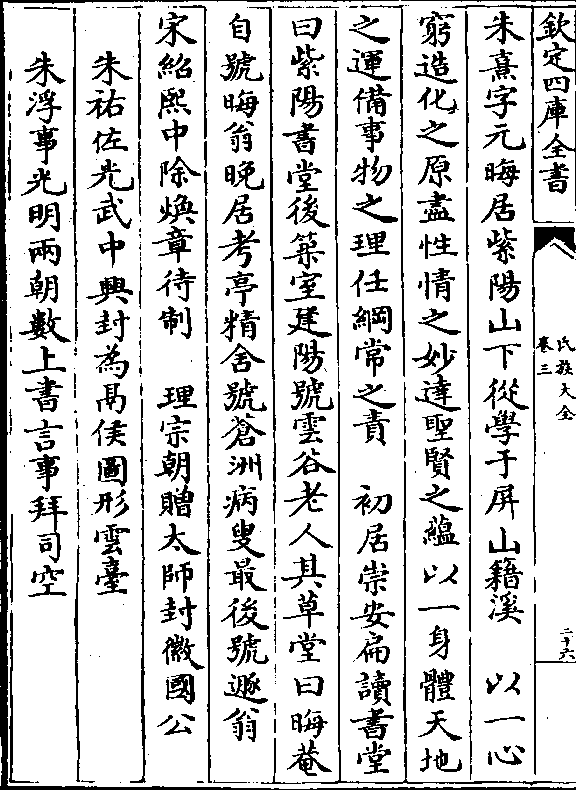 欽定四庫全書
氏族大全
卷三
二十六
朱熹字元晦居紫陽山下從學于屏山籍溪　以一心
窮造化之原盡性情之妙達聖賢之藴以一身體天地
之運備事物之理任綱常之責　初居崇安扁讀書堂
曰紫陽書堂後築室建陽號雲谷老人其草堂曰晦菴
自號晦翁晚居考亭精舍號蒼洲病叟最後號遯翁
宋紹熙中除煥章待制　理宗朝贈太師封徽國公
朱祐佐光武中興封為鬲侯圖形雲臺
朱浮事光明兩朝數上書言事拜司空